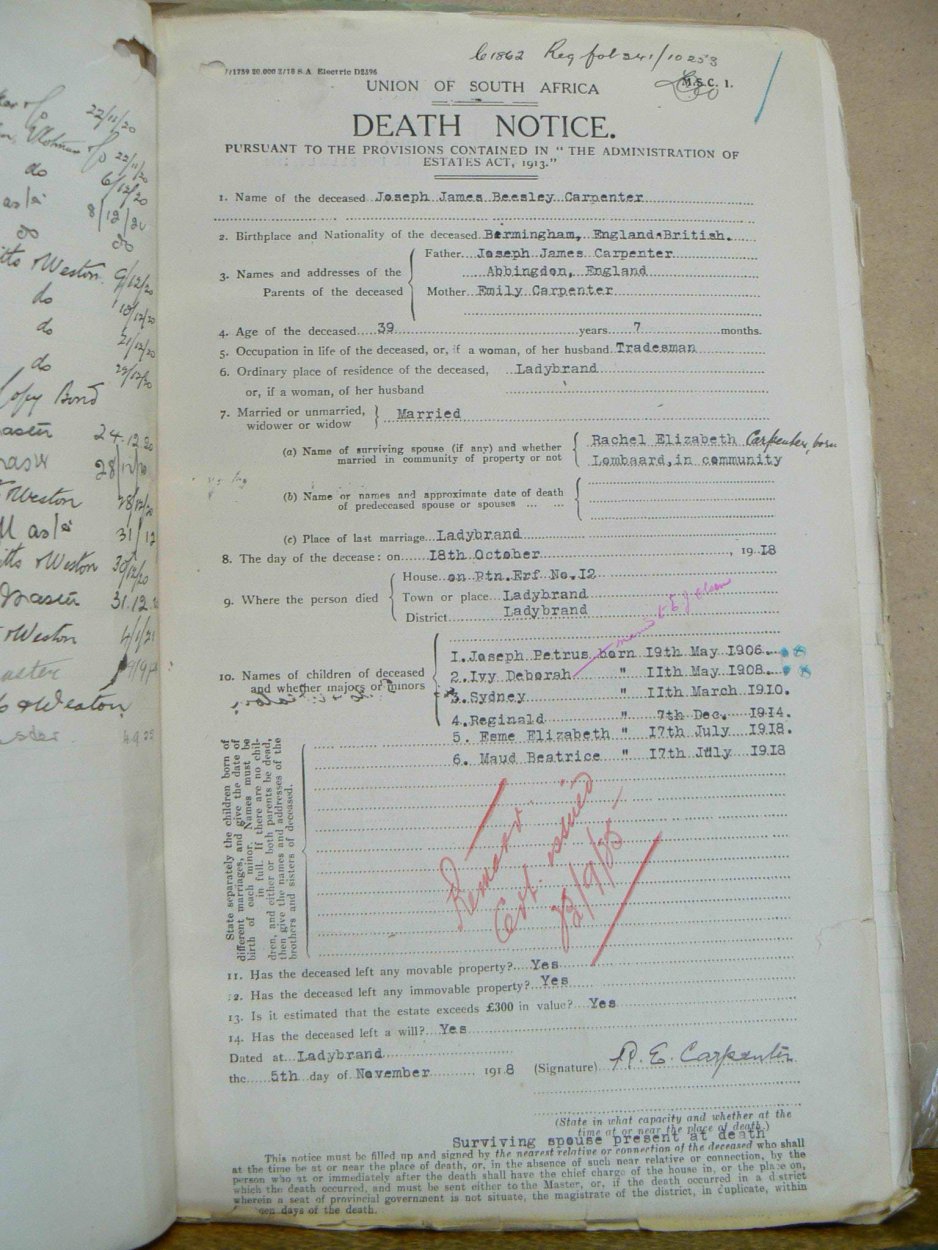 C1862 Reg fol 241/10253
7/1759 20,000 3/18 S.A Electric D2396
M.S.C. 1.
UNION OF SOUTH AFRICA
DEATH NOTICE.
PURSUANT TO THE PROVISIONS CONTAINED IN "THE ADMINISTRATION OF
ESTATES ACT, 1913."
1. Name of the deceased Joseph James Beesley Carpenter
2. Birthplace and Nationality of the deceased Bermingham, England.British.
3. Names and addresses of the Parents of the deceased
Father Joseph James Carpenter
Abbingdon, England
Mother Emily Carpenter
4. Age of the deceased 39 years 7 months.
5. Occupation in life of the deceased, or, if a woman, of her husband Tradesman
6. Ordinary place of residence of the deceased, Ladybrand
or, if a woman, of her husband
7. Married or unmarried, widower or widow } Married
(a) Name of surviving spouse (if any) and whether married in community of property or not
Rachel Elizabeth Carpenter, born
Lombaard, in community
(b) Name or names and approximate date of death
of predeceased spouse or spouses ... ...
(c) Place of last marriage Ladybrand
8. The day of the decease: on 18th October, 1918
9. Where the person died
House on Ptn.Erf No.I2
Town or place Ladybrand
District Ladybrand
10. Names of children of deceased
and whether majors or minors
1. Joseph Petrus born 19th May 1906
2. Ivy Deborah " 11th May 1908
3. Sydney " 11th March 1910.
4. Reginald " 7th Dec. 1914.
5. Esme Elizabeth " 17th July 1918.
6. Maud Beatrice " 17th July 1918
State separately the children born of
different marriages, and give the date of
birth of each minor. Names must be
in full. If there are no chil-
dren, and either or both parents be dead,
then give the names and addresses of the
brothers and sisters of deceased.
11. Has the deceased left any movable property? Yes
12. Has the deceased left any immovable property? Yes
13. Is it estimated that the estate exceeds £300 in value? Yes
14. Has the deceased left a will? Yes
Dated at Ladybrand
the 5th day of November 1918 (Signature) R. E. Carpenter
(State in what capacity and whether at the
time at or near the place of death.)
Surviving spouse present at death
This notice must be filled up and signed by the nearest relative or connection of the deceased who shall
at the time be at or near the place of death, or, in the absence of such near relative or connection, by the
person who at or immediately after the death shall have the chief charge of the house in, or the place on,
which the death occurred, and must be sent either to the Master, or, if the death occurred in a district
wherein a seat of provincial government is not situate, the magistrate of the district, in duplicate, within
days of the death.
22/11/20
do 6/12/20
8/12/20
do
Weston
do
do
do
Copy Bond
24.12.20
Weston
31/12
Weston
31.12
Weston 4/1/21
Weston